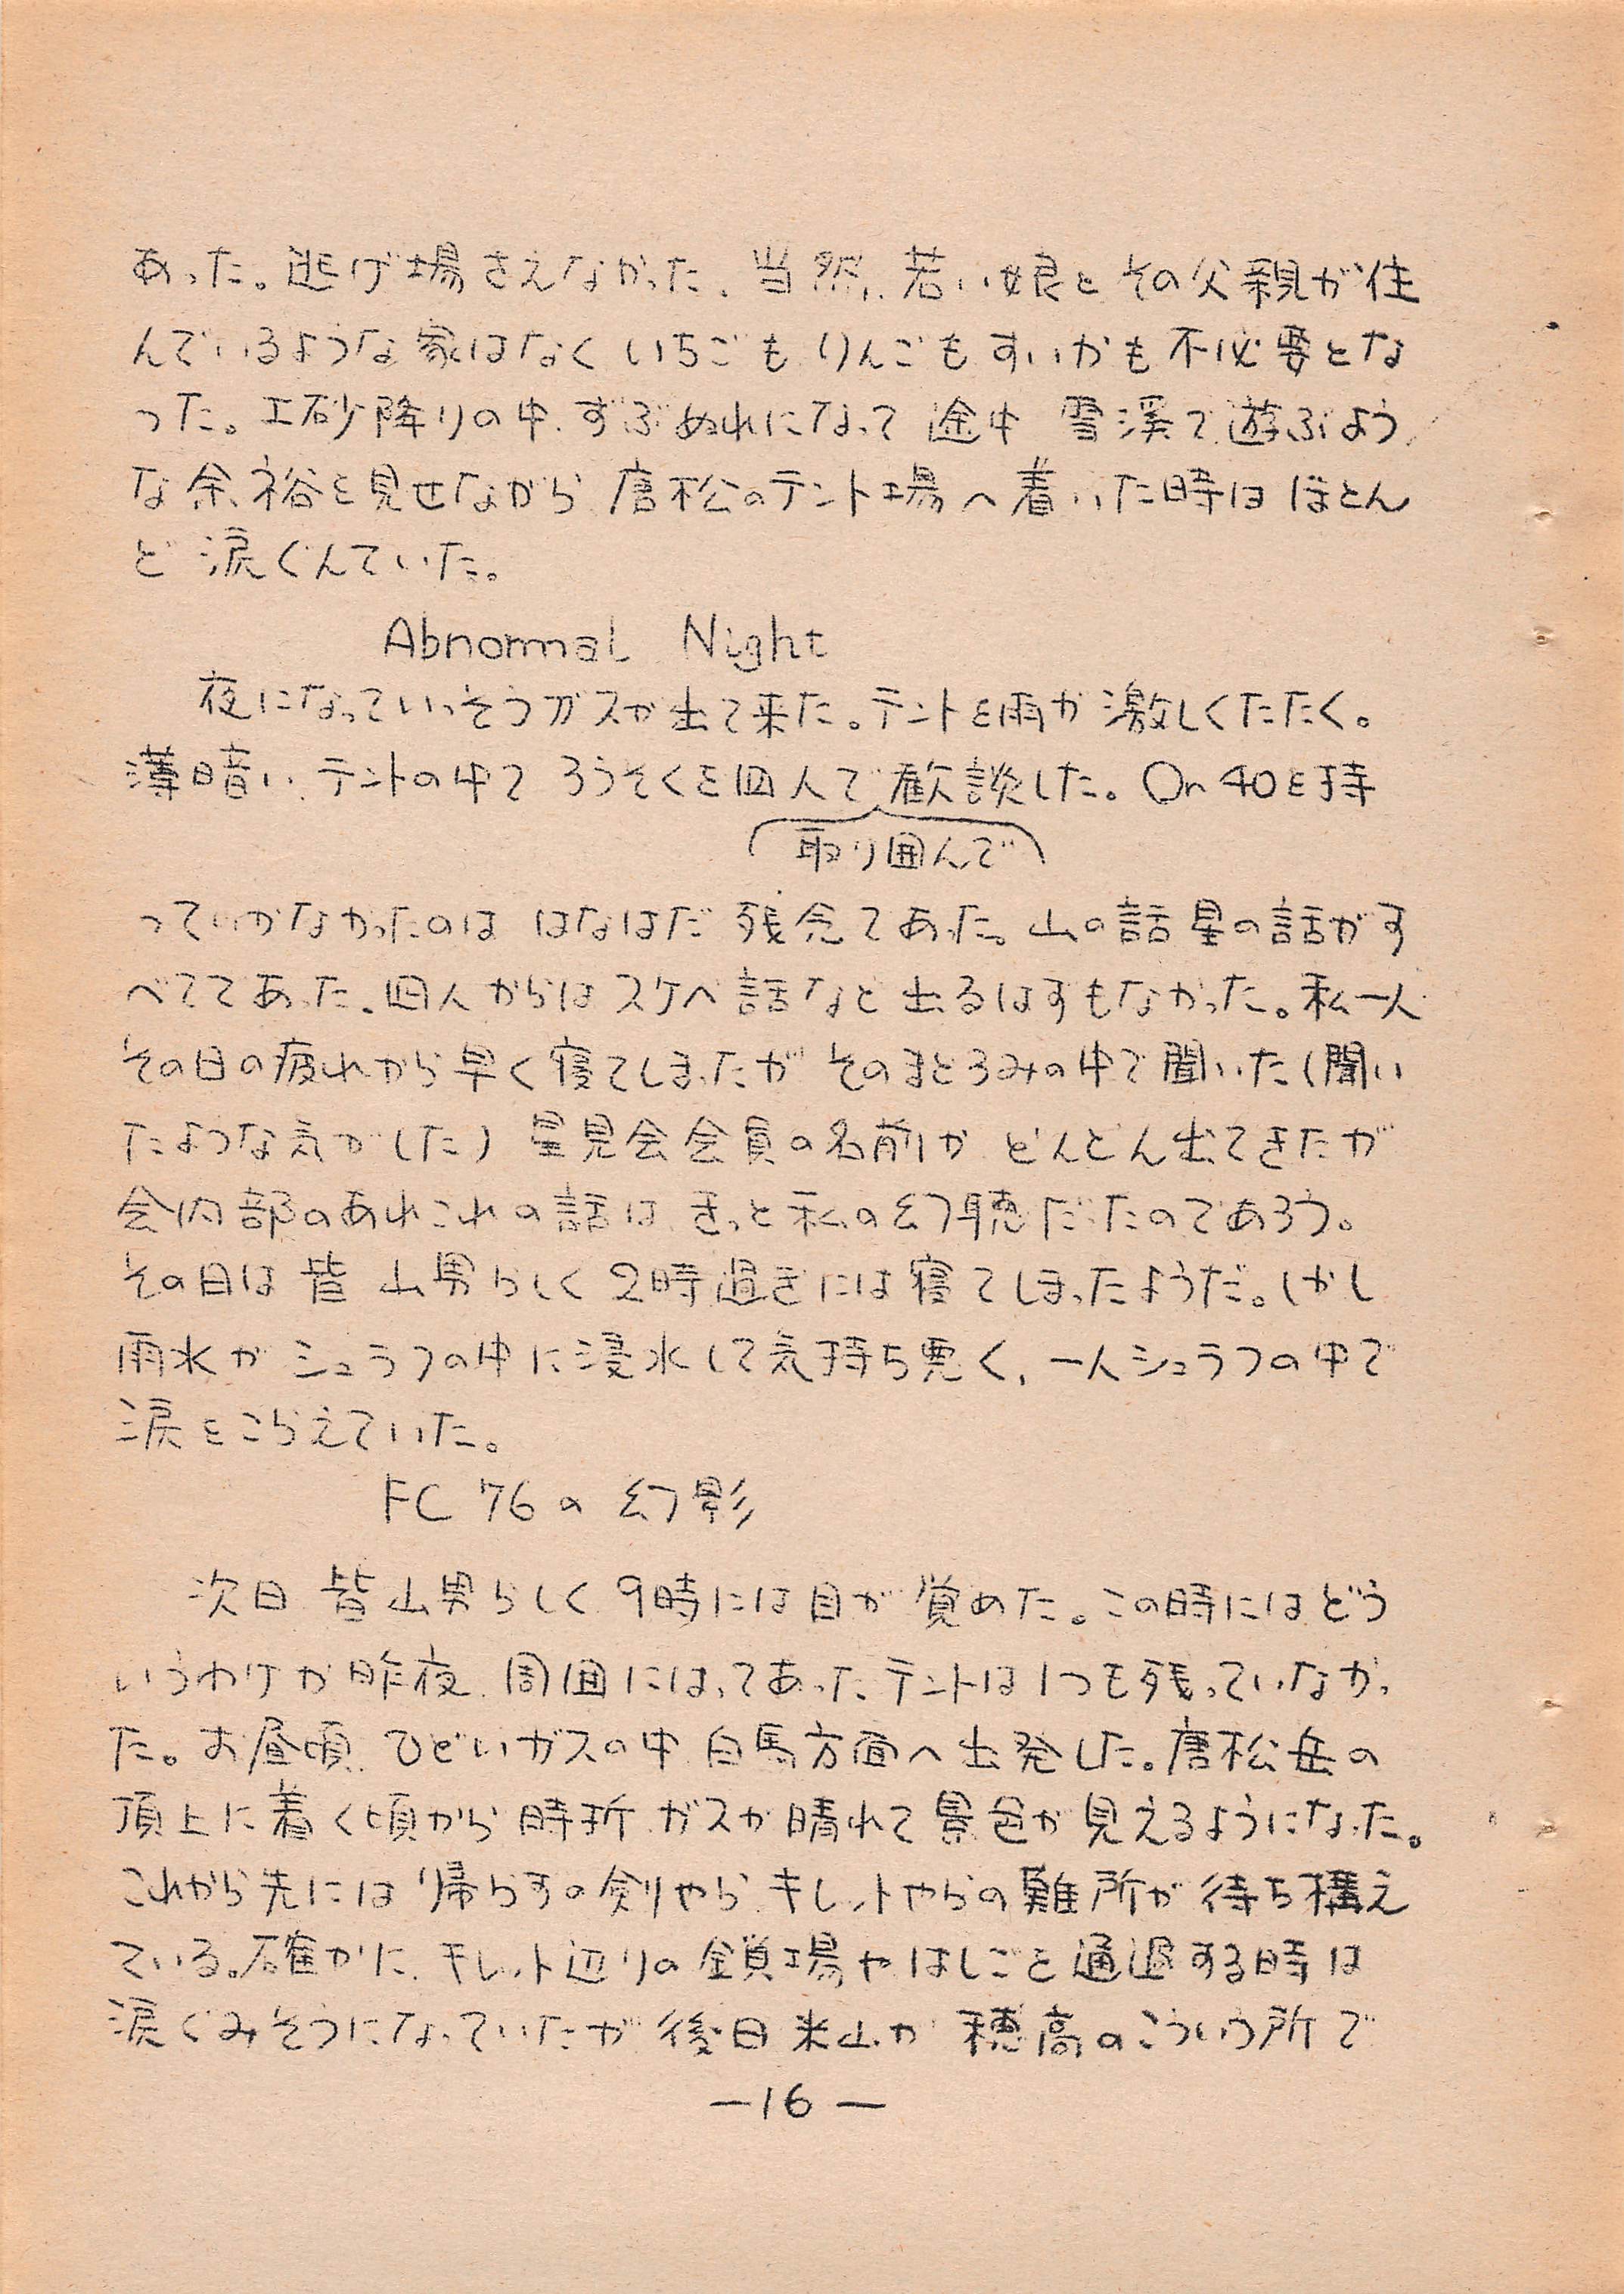 あった。逃げ場さえなかった。当然、若い娘とその父親が住
んでいるような家はなく いちごも りんごも すいかも不必要とな
った。土砂降りの中、ずぶぬれになって 途中 雪渓で遊ぶよう
な余裕を見せながら 唐松のテント場へ着いた時はほとん
ど 涙ぐんでいた。
Abnormal Night
夜になっていっそうガスが出て来た。テントを雨が激しくたたく。
薄暗い テントの中で ろうそくを四人で 歓談した。Or 40を持
取り囲んで
っていかなかったのは はなはだ 残念であった。山の話 星の話がす
べてであった。四人からはスケベ話など出るはずもなかった。私一人
その日の疲れから早く寝てしまったが そのまどろみの中で聞いた(聞い
たような気がした) 星見会会員の名前が どんどん出てきたが
会内部のあれこれの話は きっと私の幻聴だったのであろう。
その日は 皆 山男らしく 2時過ぎには寝てしまったようだ。しかし
雨水が シュラフの中に浸水して気持ち悪く、一人シュラフの中で
涙をこらえていた。
FC 76の幻影
次日 皆山男らしく 9時には目が覚めた。この時にはどう
いうわけか昨夜 周囲にはってあった テントは1つも残っていなかっ
た。お昼頃 ひどいガスの中 白馬方面へ出発した。唐松岳の
頂上に着く頃から時折 ガスが晴れて景色が見えるようになった。
これから先には 帰らずの剣やら キレットやらの難所が待ち構え
ている。確かに、キレット辺りの鎖場や はしごを通過する時は
涙ぐみそうになっていたが 後日 米山が 穂高のこういう所で
—16—